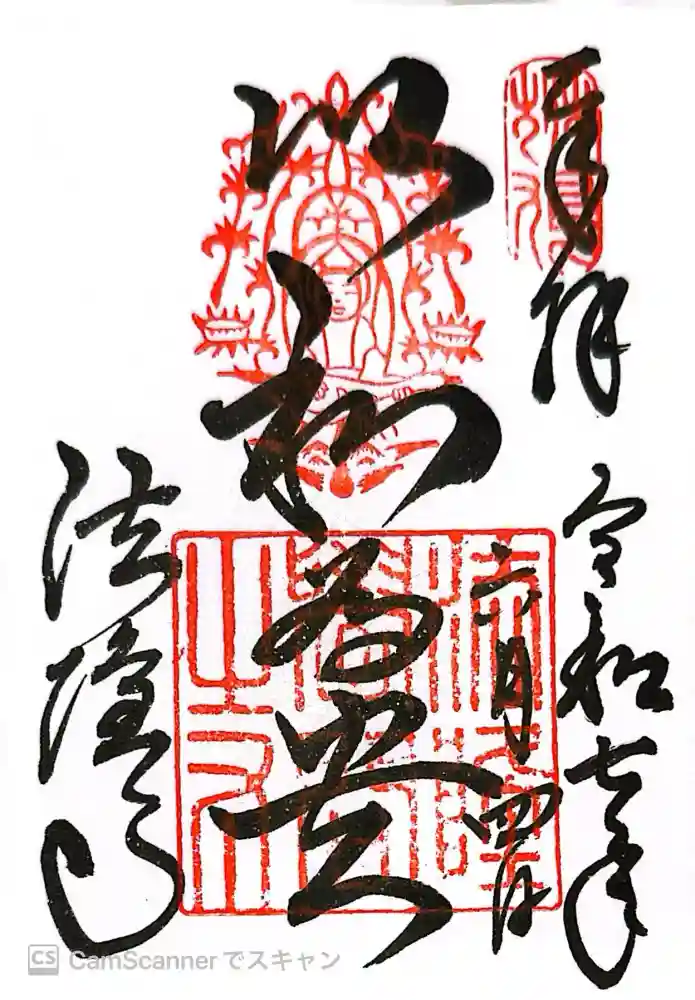 奉拝
令和七年
六月四日
以和為貴
法隆寺
CS CamScannerでスキャン